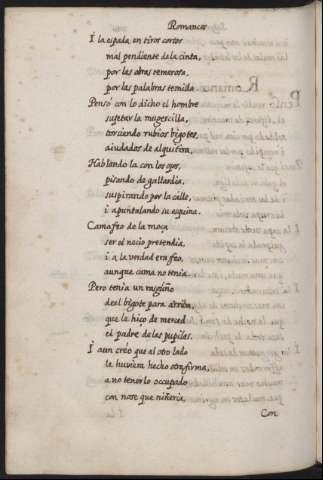 Romances
I la espada en tiros cortos
mal pendiente de la cinta,
por las obras temerosa,
por las palabras temida.
Pensó con lo dicho el hombre
sujetar la mugercilla,
torciendo rubios bigotes,
aiudados de alquitira,
Hablando la con los ojos,
pisando de gallardia,
suspirando por la calle,
i apuntalando su esquina.
Camafeo de la moça
ser el nacio pretendia.
i a la verdad era feo,
aunque cama no tenia.
Pero tenia un
de el bigote para arriba,
que la hiço de merced
el padre de las pupilas.
I aun creo que al otro lado
la huviera hecho otra firma,
a no tenerlo ocupado
con no se que niñeria,
Con